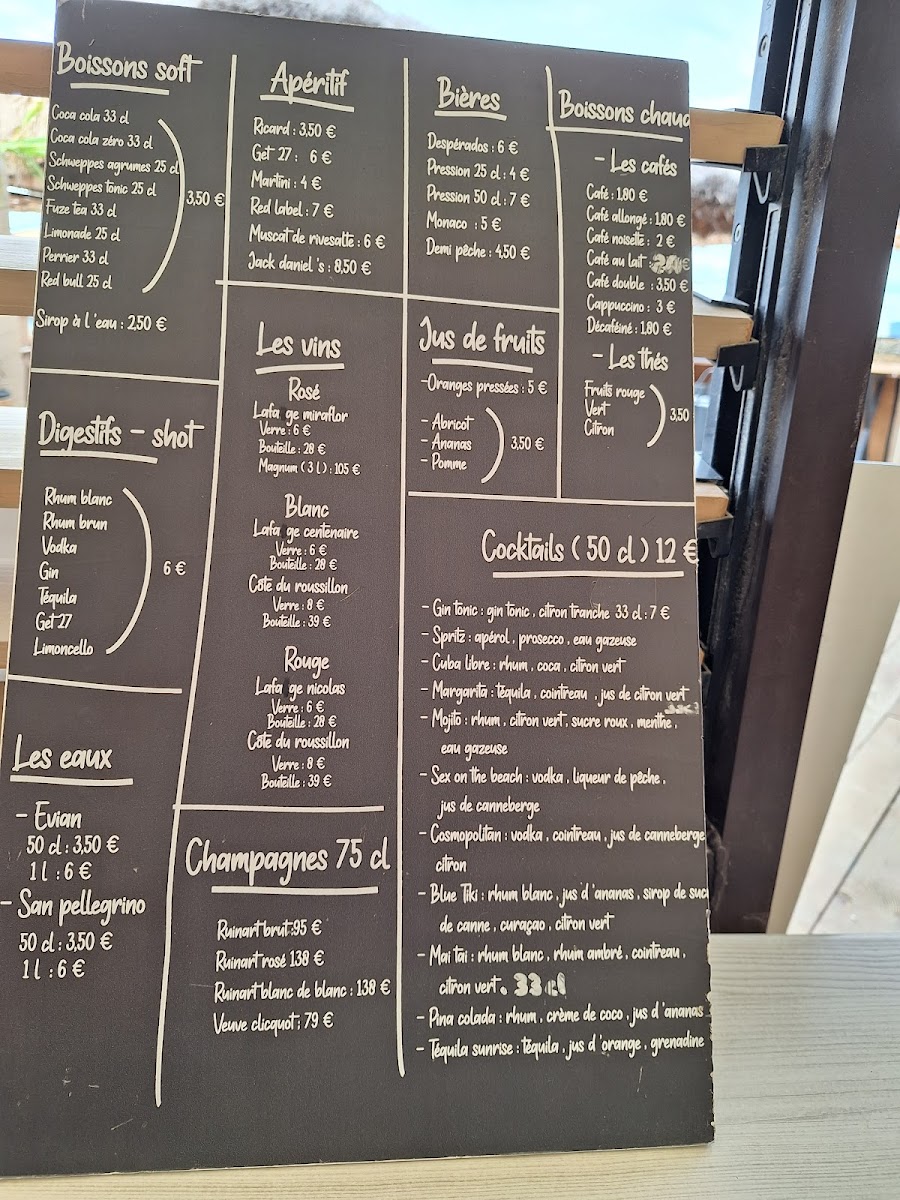 Boissons soft
Coca cola 33 cl
Coca cola zéro 33 cl
Schweppes agrumes 25 cl
Schweppes tonic 25 cl
Fuze tea 33 cl
Limonade 25 cl
Perrier 33 cl
Red bull 25 cl
3,50 €
Sirop à l'eau : 2,50 €
Digestifs - shot
Rhum blanc
Rhum brun
Vodka
Gin
Téquila
Get 27
Limoncello
6 €
Les eaux
- Evian
50 cl : 3,50 €
1 l : 6 €
- San pellegrino
50 cl : 3,50 €
1 l : 6 €
Apéritif
Ricard : 3,50 €
Get 27 : 6 €
Martini : 4 €
Red label : 7 €
Muscat de rivesalte : 6 €
Jack daniel's : 8,50 €
Les vins
Rosé
Lafa ge miraflor
Verre : 6 €
Bouteille : 28 €
Magnum ( 3 l ) : 105 €
Blanc
Lafa ge centenaire
Verre : 6 €
Bouteille : 28 €
Côte du roussillon
Verre : 8 €
Bouteille : 39 €
Rouge
Lafa ge nicolas
Verre : 6 €
Bouteille : 28 €
Côte du roussillon
Verre : 8 €
Bouteille : 39 €
Champagnes 75 cl
Ruinart brut :95 €
Ruinart rosé 138 €
Ruinart blanc de blanc : 138 €
Veuve clicquot ; 79 €
Bières
Despérados : 6 €
Pression 25 cl : 4 €
Pression 50 cl : 7 €
Monaco : 5 €
Demi pêche : 4,50 €
Jus de fruits
-Oranges pressées : 5 €
- Abricot
- Ananas
- Pomme
3,50 €
Boissons chaud
- Les cafés
Café : 1,80 €
Café allongé : 1,80 €
Café noisette : 2 €
Café au lait : €
Café double : 3,50 €
Cappuccino : 3 €
Décaféiné : 1,80 €
- Les thés
Fruits rouge
Vert
Citron
3,50
Cocktails ( 50 cl ) 12 €
- Gin tonic : gin tonic , citron tranche 33 cl : 7 €
- Spritz : apérol , prosecco , eau gazeuse
- Cuba libre : rhum , coca , citron vert
- Margarita : téquila , cointreau , jus de citron vert
- Mojito : rhum , citron vert , sucre roux , menthe ,
eau gazeuse
- Sex on the beach : vodka , liqueur de pêche ,
jus de canneberge
- Cosmopolitan : vodka , cointreau , jus de canneberge
citron
- Blue Tiki : rhum blanc , jus d'ananas , sirop de suc
de canne , curaçao , citron vert
- Mai tai : rhum blanc , rhum ambré , cointreau ,
citron vert . 33 cl
- Pina colada : rhum , crème de coco , jus d'ananas
- Téquila sunrise : téquila , jus d'orange , grenadine